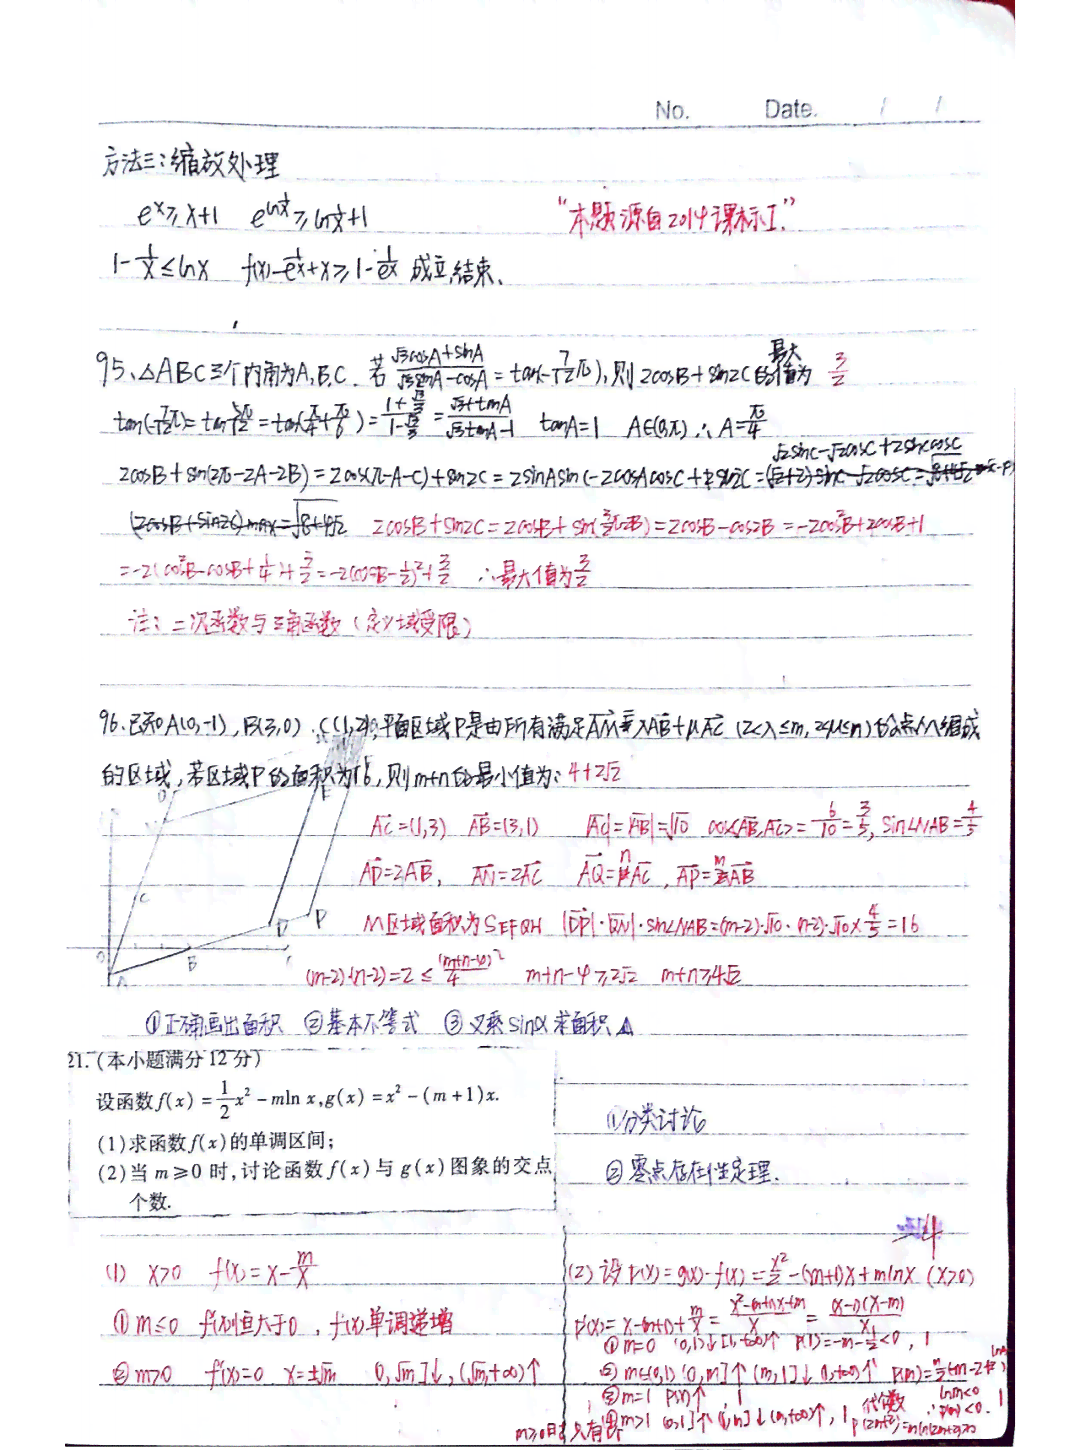 No. Date. / /
方法三:缩放处理
eˣ≥x+1 e^{ln1/x}≥ln1/x+1 “本题源自2014课标I.”
1-1/x≤lnx f(x)-1/ex+x≥1-1/ex 成立,结束.
95、△ABC三个内角为A,B,C. 若 (√3cosA+sinA)/(√3sinA-cosA)=tan(-7/12π),则2cosB+sin2C的最大值为 3/2
tan(-7/12π)=tan5π/12=tan(π/4+π/6)=(1+√3/3)/(1-√3/3)=(√3+tanA)/(√3tanA-1) tanA=1 A∈(0,π)∴A=π/4
2cosB+sin(2π-2A-2B)=2cos(π-A-C)+sin2C=2sinAsinC-2cosAcosC+2sin2C=
√2sinC-√2cosC+2sinCcosC
(2cosB+sin2C)max=√8+4√2 2cosB+sin2C=2cosB+sin(3/2π-2B)=2cosB-cos2B=-2cos²B+2cosB+1
=-2(cos²B-cosB+1/4)+3/2=-2(cosB-1/2)²+3/2 ∴最大值为3/2
注:二次函数与三角函数(定义域受限)
96.已知A(0,-1),B(3,0),C(1,2),平面区域P是由所有满足AM=λAB+μAC (2<λ≤m,2<μ≤n)的点M组成
的区域,若区域P的面积为16,则m+n的最小值为:4+2√2
AC=(1,3) AB=(3,1) |AC|=|AB|=√10 cos<AB,AC>=6/10=3/5, sin∠NAB=4/5
AD=2AB, AN=2AC AQ=nAC, AP=mAB
M区域面积为S EFQH |DP|·|QN|·sin∠NAB=(m-2)·√10·(n-2)·√10×4/5=16
(m-2)(n-2)=2≤(m+n-4)²/4 m+n-4≥2√2 m+n≥4√2
①正确画出面积 ②基本不等式 ③义系sinα求面积△
21.(本小题满分12分)
设函数f(x)=1/2x²-mln x,g(x)=x²-(m+1)x.
(1)求函数f(x)的单调区间;
(2)当m≥0时,讨论函数f(x)与g(x)图象的交点
个数.
①分类讨论
②零点存在性定理.
-4
(1) x>0 f'(x)=x-m/x
①m≤0 f'(x)恒大于0,f(x)单调递增
②m>0 f'(x)=0 x=±√m 0,√m]↓,(√m,+∞)↑
(2)设P(x)=g(x)-f(x)=x²/2-(m+1)x+mlnx (x>0)
P'(x)=x-(m+1)+m/x=(x²-(m+1)x+m)/x=(x-1)(x-m)/x
①m=0 (0,1)↓[1,+∞)↑ P(1)=-m-1/2<0, 1
②m∈(0,1) (0,m]↑ (m,1]↓ (1,+∞)↑ P(m)=
lnm<0 ∴P(m)<0. 1
③m=1 P(x)↑ 1
④m>1 (0,1]↑(1,m]↓(m,+∞)↑, 1 代个数 P(2m+2)=mln(2m+2)>0
m≥0时只有1个